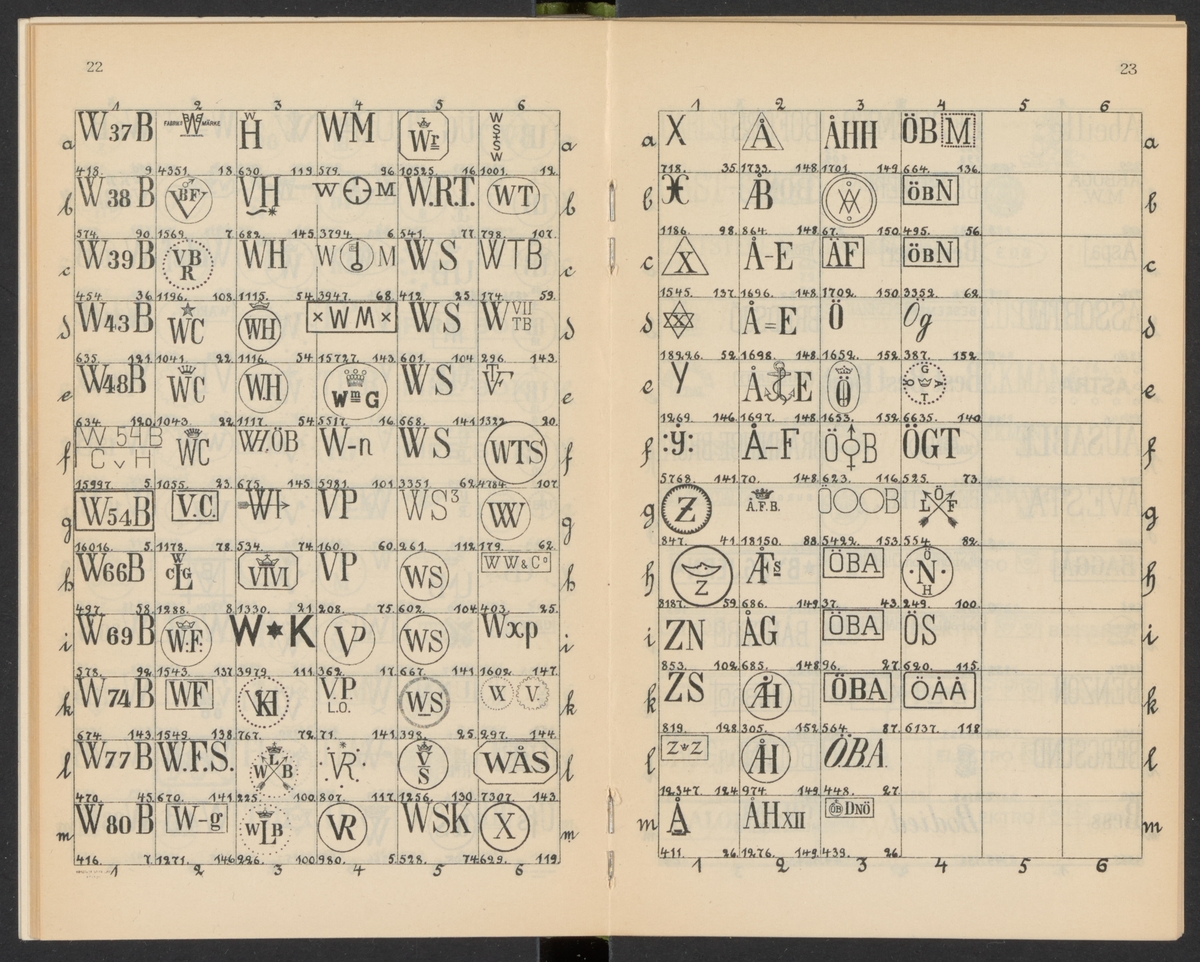 22
1 2 3 4 5 6
a W 37 B FABRIKS W MÄRKE WH WM Wr WSSW a
418. 9. 4351. 18 630. 119. 579. 96 10525. 16. 1001. 12.
b W 38 B VBF VH W M W.R.T. WT b
574. 90. 1569. 7 682. 145. 3794. 6 541. 77. 798. 107.
c W39B VBR WH W M WS WTB c
454. 36. 1196. 108. 1115. 54. 3947. 68. 412. 25 174. 59.
d W43B WC WH ×WM× WS W VII TB d
635. 121. 1041. 22. 1116. 54 15727. 143. 601. 104 296. 143.
e W48B WC WH WmG WS VT e
634. 120. 1043. 22. 1117. 54. 5517. 16. 668. 141. 1322. 20.
f W 54 B C v H WC W.ÖB W-n WS WTS f
15997. 5. 1055. 23. 675. 145. 5981. 101. 3351. 62. 4784. 107.
g W54B V.C. WI VP WS3 W g
16016. 5. 1178. 78. 534. 74 160. 60. 261. 112. 179. 62.
h W66B WcLG VIVI VP WS WW&Co h
427. 58. 1288. 8 1330. 21 208. 75. 602. 104 403. 25.
i W 69 B W.F. W K VP WS Wxp i
578. 92. 1543. 137 3979. 111. 362. 17 667. 141 1602. 147.
k W 74 B WF VKH V.P. L.O. WS W V. k
674. 143. 1549. 138. 767. 72. 71. 141. 398. 25. 297. 144.
l W77B W.F.S. WLB VR. VS WÅS l
470. 45. 670. 141. 225. 100. 807. 117. 1256. 130 7307. 143.
m W 80 B W-g WLB VR WSK X m
416. 7. 1271. 146. 226. 100. 980. 5. 528. 74. 629. 119.
1 2 3 4 5 6
23
1 2 3 4 5 6
a X Å ÅHH ÖB M a
718. 35. 1733. 148. 1701. 149. 664. 136.
b ÅB ÅV ÖBN b
1186. 98. 864. 148. 67. 150. 495. 56.
c X Å-E ÅF ÖBN c
1545. 137. 1696. 148. 1702. 150 3352. 62.
d X Å=E Ö Ög d
18226. 52. 1698. 148. 1652. 152. 387. 152.
e Y Å E Ö G T. e
1269. 146. 1697. 148. 1653. 152. 6635. 140
f :Y: Å-F Ö B ÖGT f
5768. 141. 70. 148. 623. 116. 525. 73.
g Z Å.F.B. ÖOOB LÖF g
847. 41 18150. 88. 5422. 153. 554. 82.
h Z ÅFs ÖBA Ö N H h
8187. 59. 686. 149. 37. 43. 249. 100.
i ZN ÅG ÖBA ÖS i
853. 102. 685. 148. 96. 27. 620. 115.
k ZS ÅH ÖBA ÖÅÅ k
819. 128. 305. 152. 564. 87. 6137. 118
l Z Z ÅH ÖBA l
12347. 124 974. 149. 448. 27.
m Å ÅHXII ÖB DNÖ m
411. 26. 1276. 149. 439. 26.
1 2 3 4 5 6